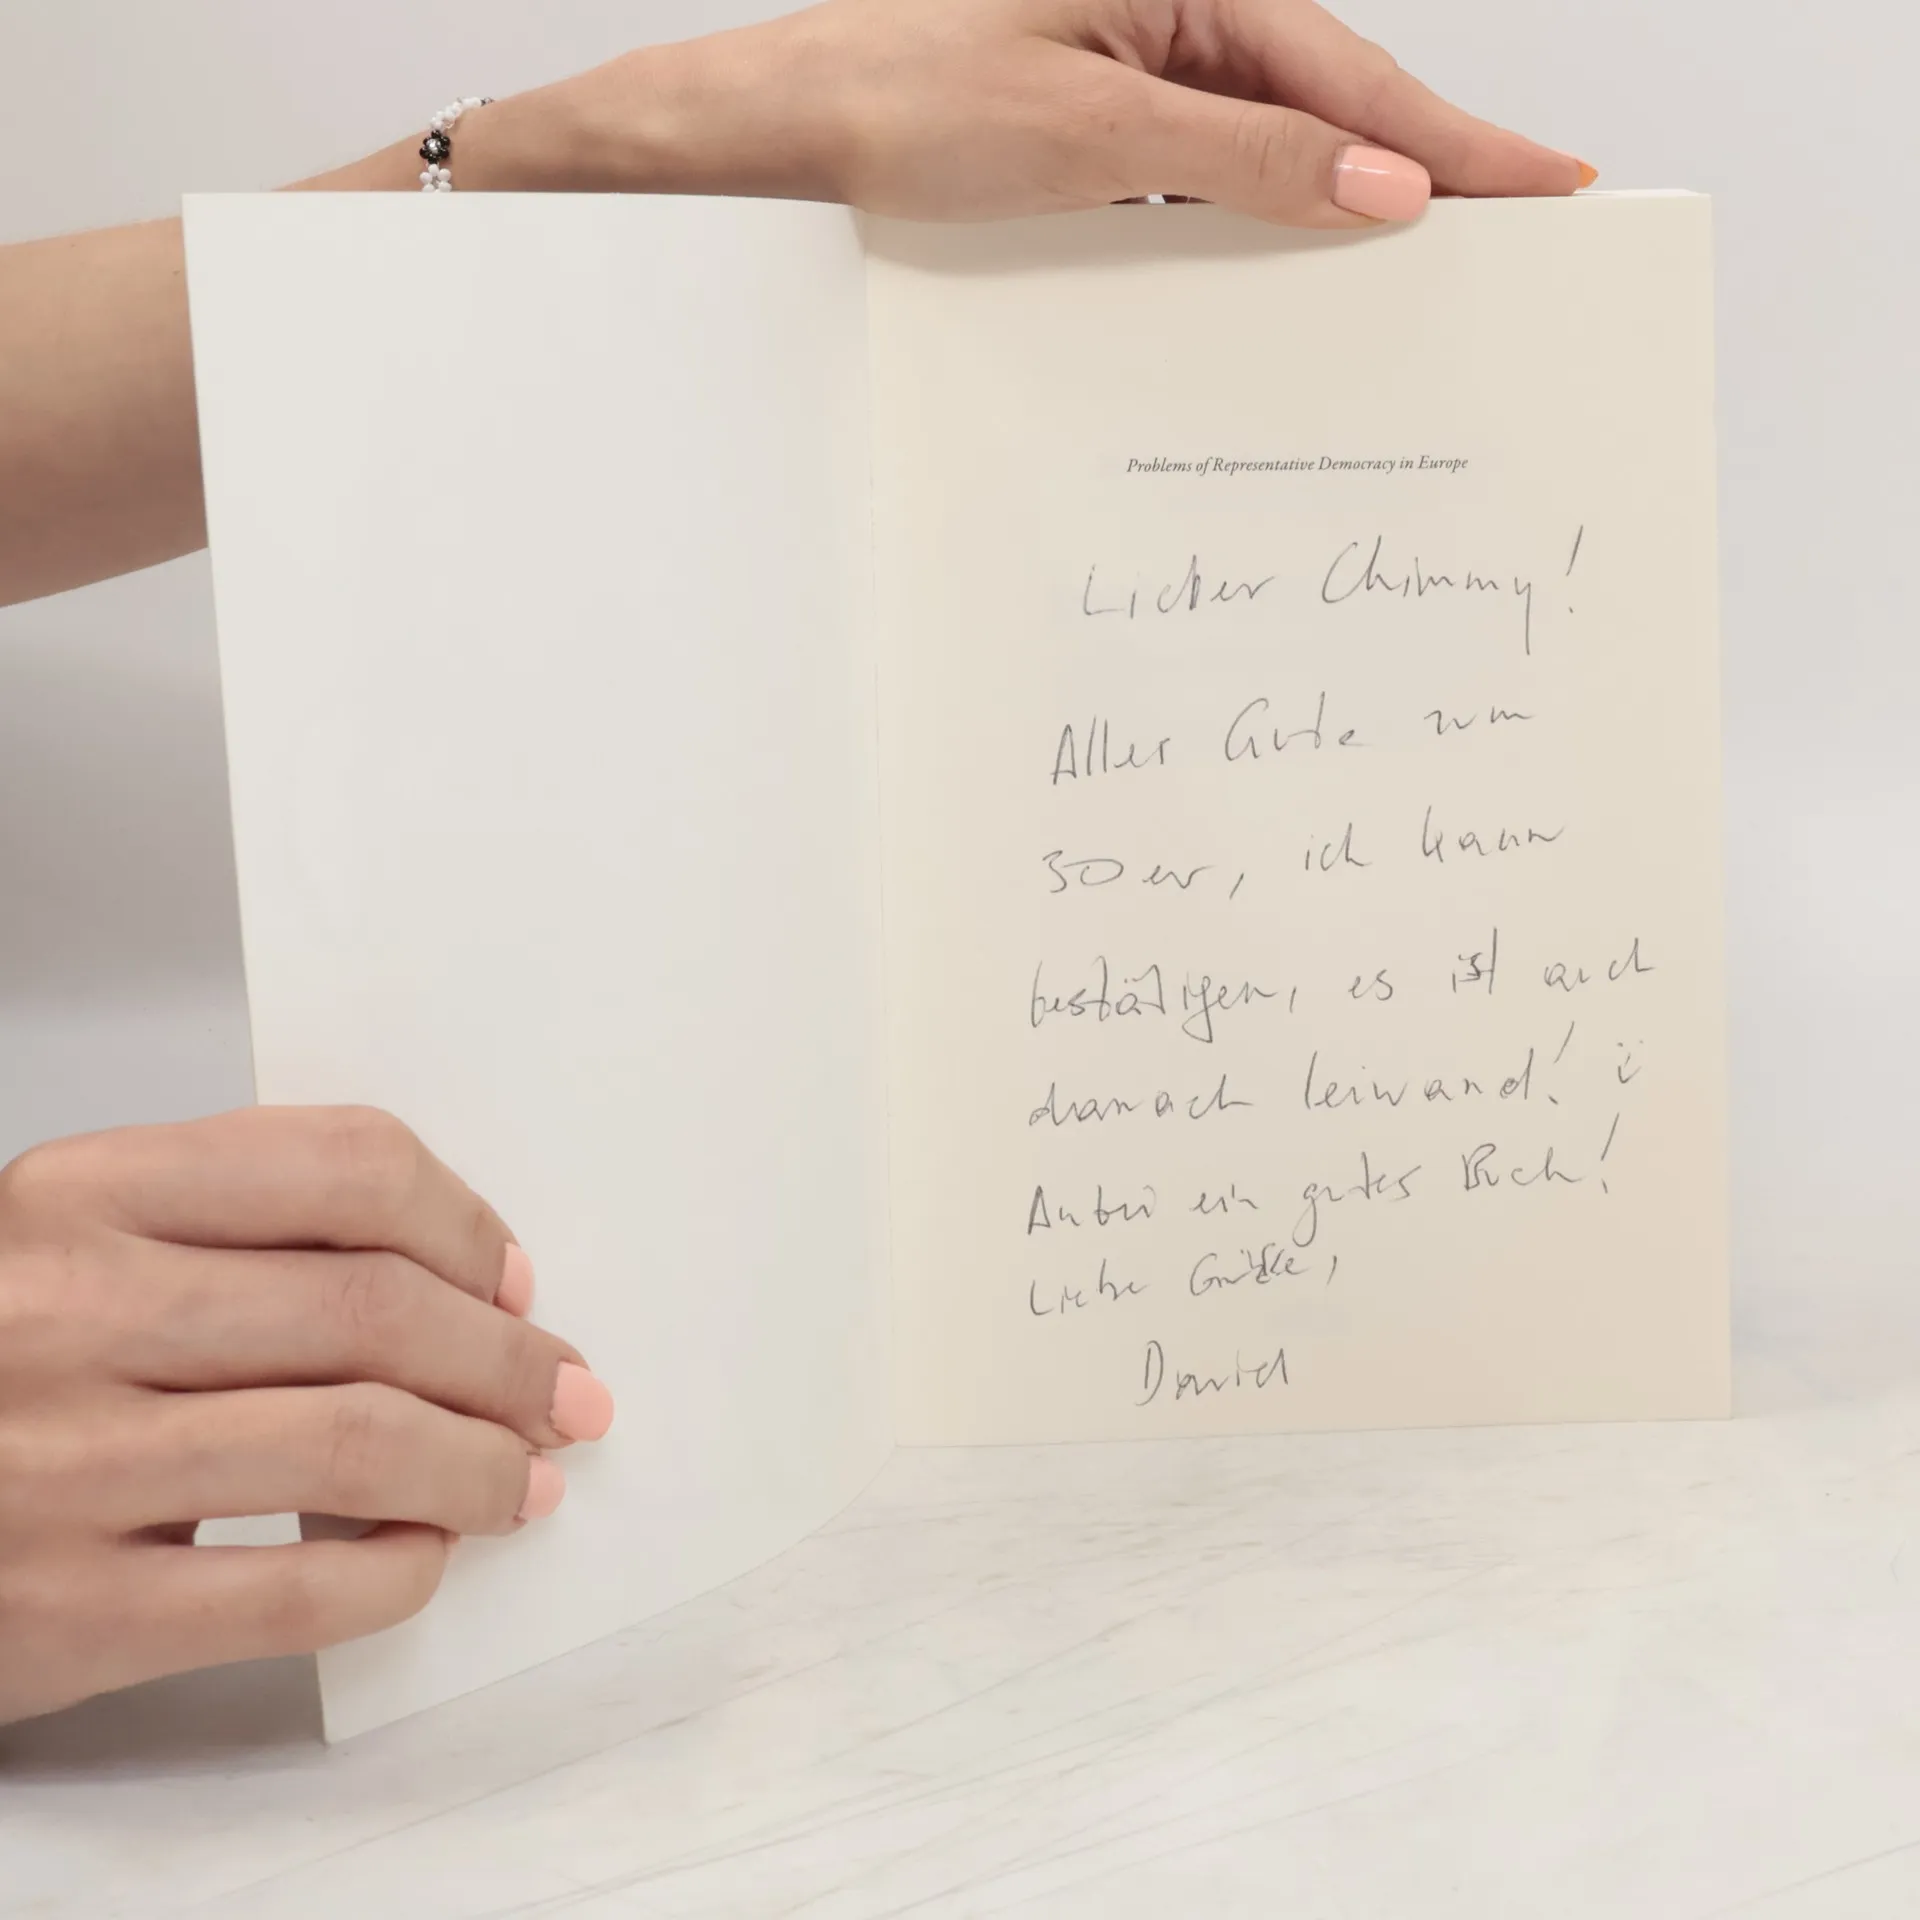 Problems of Representative Democracy in Europe
Lieber Chimmy!
Alles Gute zum
30er, ich kann
bestätigen, es ist auch
danach leiwand! ü
Anbei ein gutes Buch!
Liebe Grüße,
David